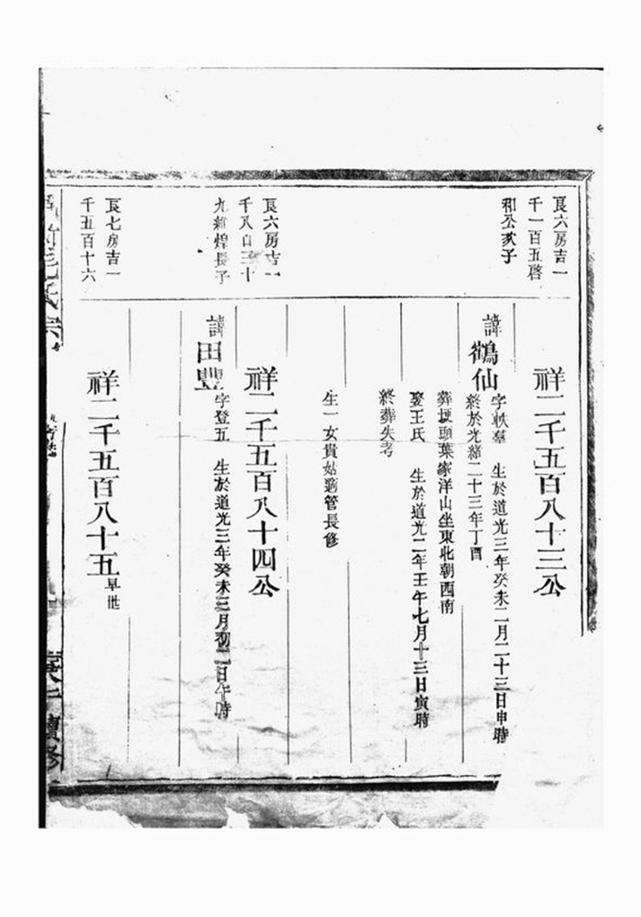 良六房吉一
千一百五啓
和公次子
祥二千五百八十三公
諱鶴仙
字軼羣 生於道光三年癸未二月二十三日申時
終於光緒二十三年丁酉
葬埂頭葉家洋山坐東北朝西南
娶王氏 生於道光二年壬午七月十三日寅時
終葬失考
生一女貴姑適管長修
良六房吉一
千八百三十
九維煌長子
祥二千五百八十四公
諱田豐
字登五 生於道光三年癸未三月初二日午時
良七房吉一
千五百十六
祥二千五百八十五
早世
毛氏宗
續修